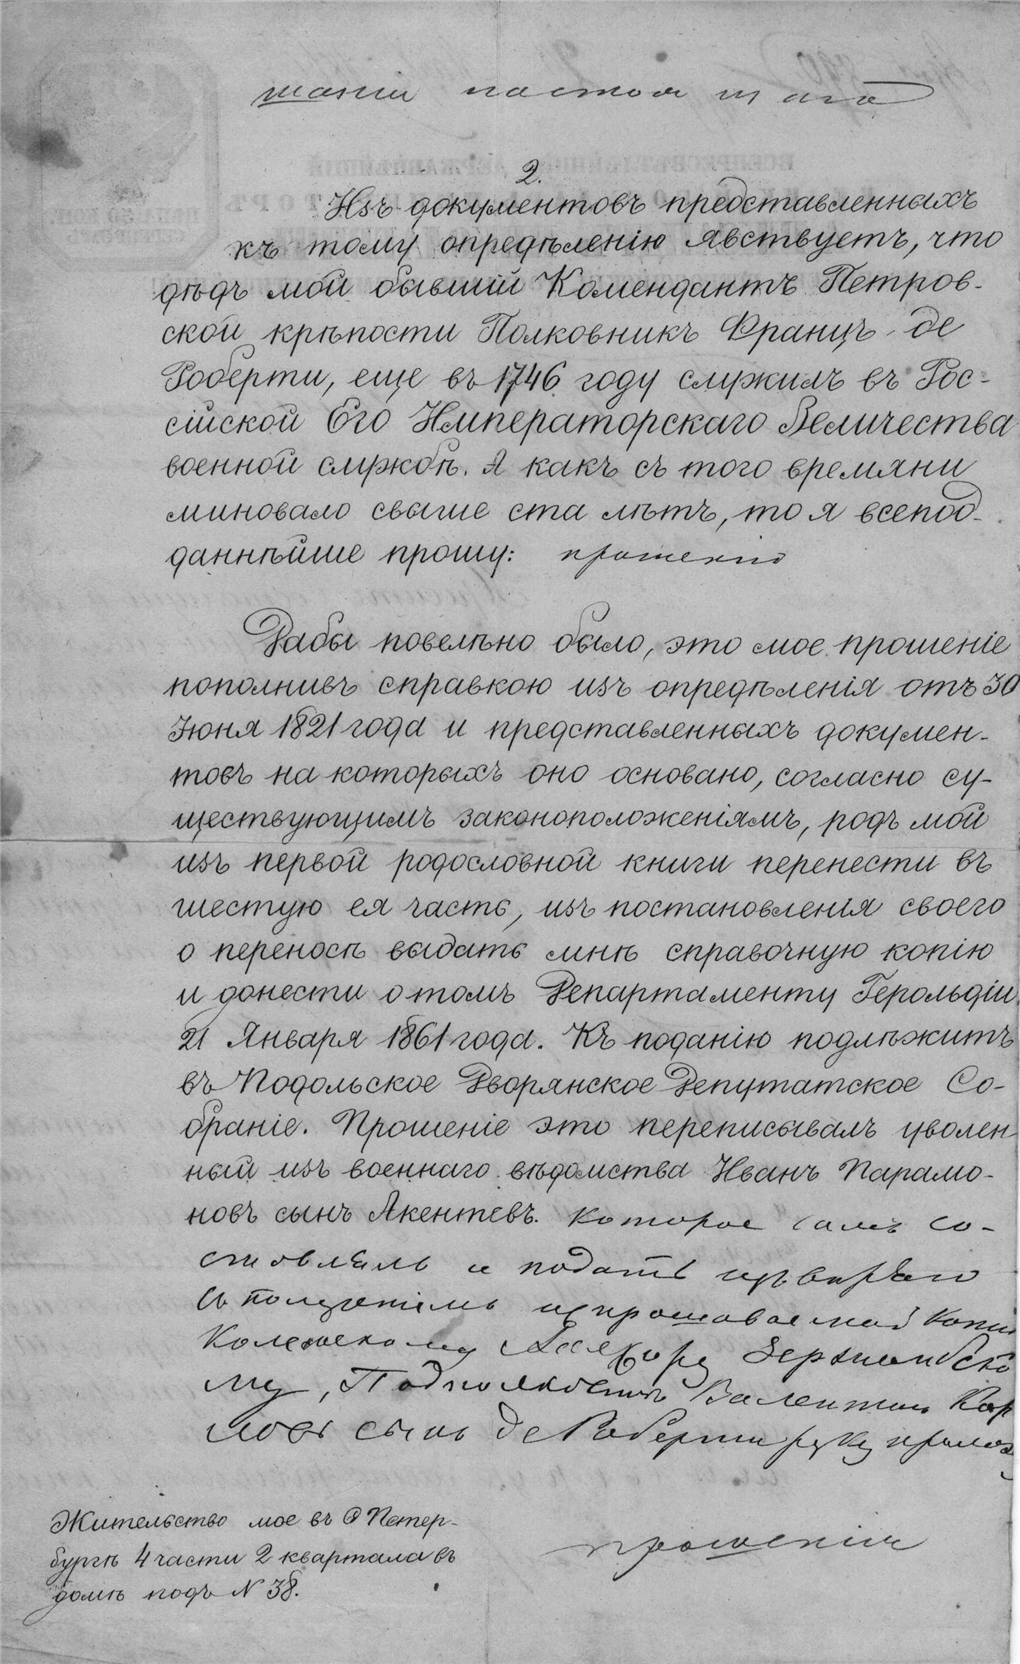 шаніи настоящаго
2.
Изъ документовъ представленныхъ
къ тому опредѣленію явствуетъ, что
дѣдъ мой бывшій Комендантъ Петров-
ской крѣпости Полковникъ Францъ де
Роберти, еще въ 1746 году служилъ въ Рос-
сійской Его Императорскаго Величества
военной службѣ. А какъ съ того времяни
миновало свыше ста лѣтъ, то я всепод-
даннѣйше прошу: прошенію
Дабы повелѣно было, это мое прошеніе
пополнивъ справкою изъ опредѣленія отъ 30
Іюня 1821 года и представленныхъ докумен-
товъ на которыхъ оно основано, согласно су-
ществующимъ законоположеніямъ, родъ мой
изъ первой родословной книги перенести въ
шестую ея часть, изъ постановленія своего
о переносѣ выдать мнѣ справочную копію
и донести о томъ Департаменту Герольдіи
21 Января 1861 года. Къ поданію подлѣжитъ
въ Подольское Дворянское Депутатское Со-
браніе. Прошеніе это переписывалъ уволен
ный изъ военнаго вѣдомства Иванъ Парамо-
новъ сынъ Акентевъ. которое самъ со-
ставлялъ и подать
съ полученіемъ испрашиваемой копіи
Колежскому Асесору
му, Подполковникъ Валентинъ Кар
ловъ сынъ де Роберти руку прилож
Жительство мое въ С Петер-
бургѣ 4 части 2 квартала въ
домѣ подъ N 38.
прошеніи